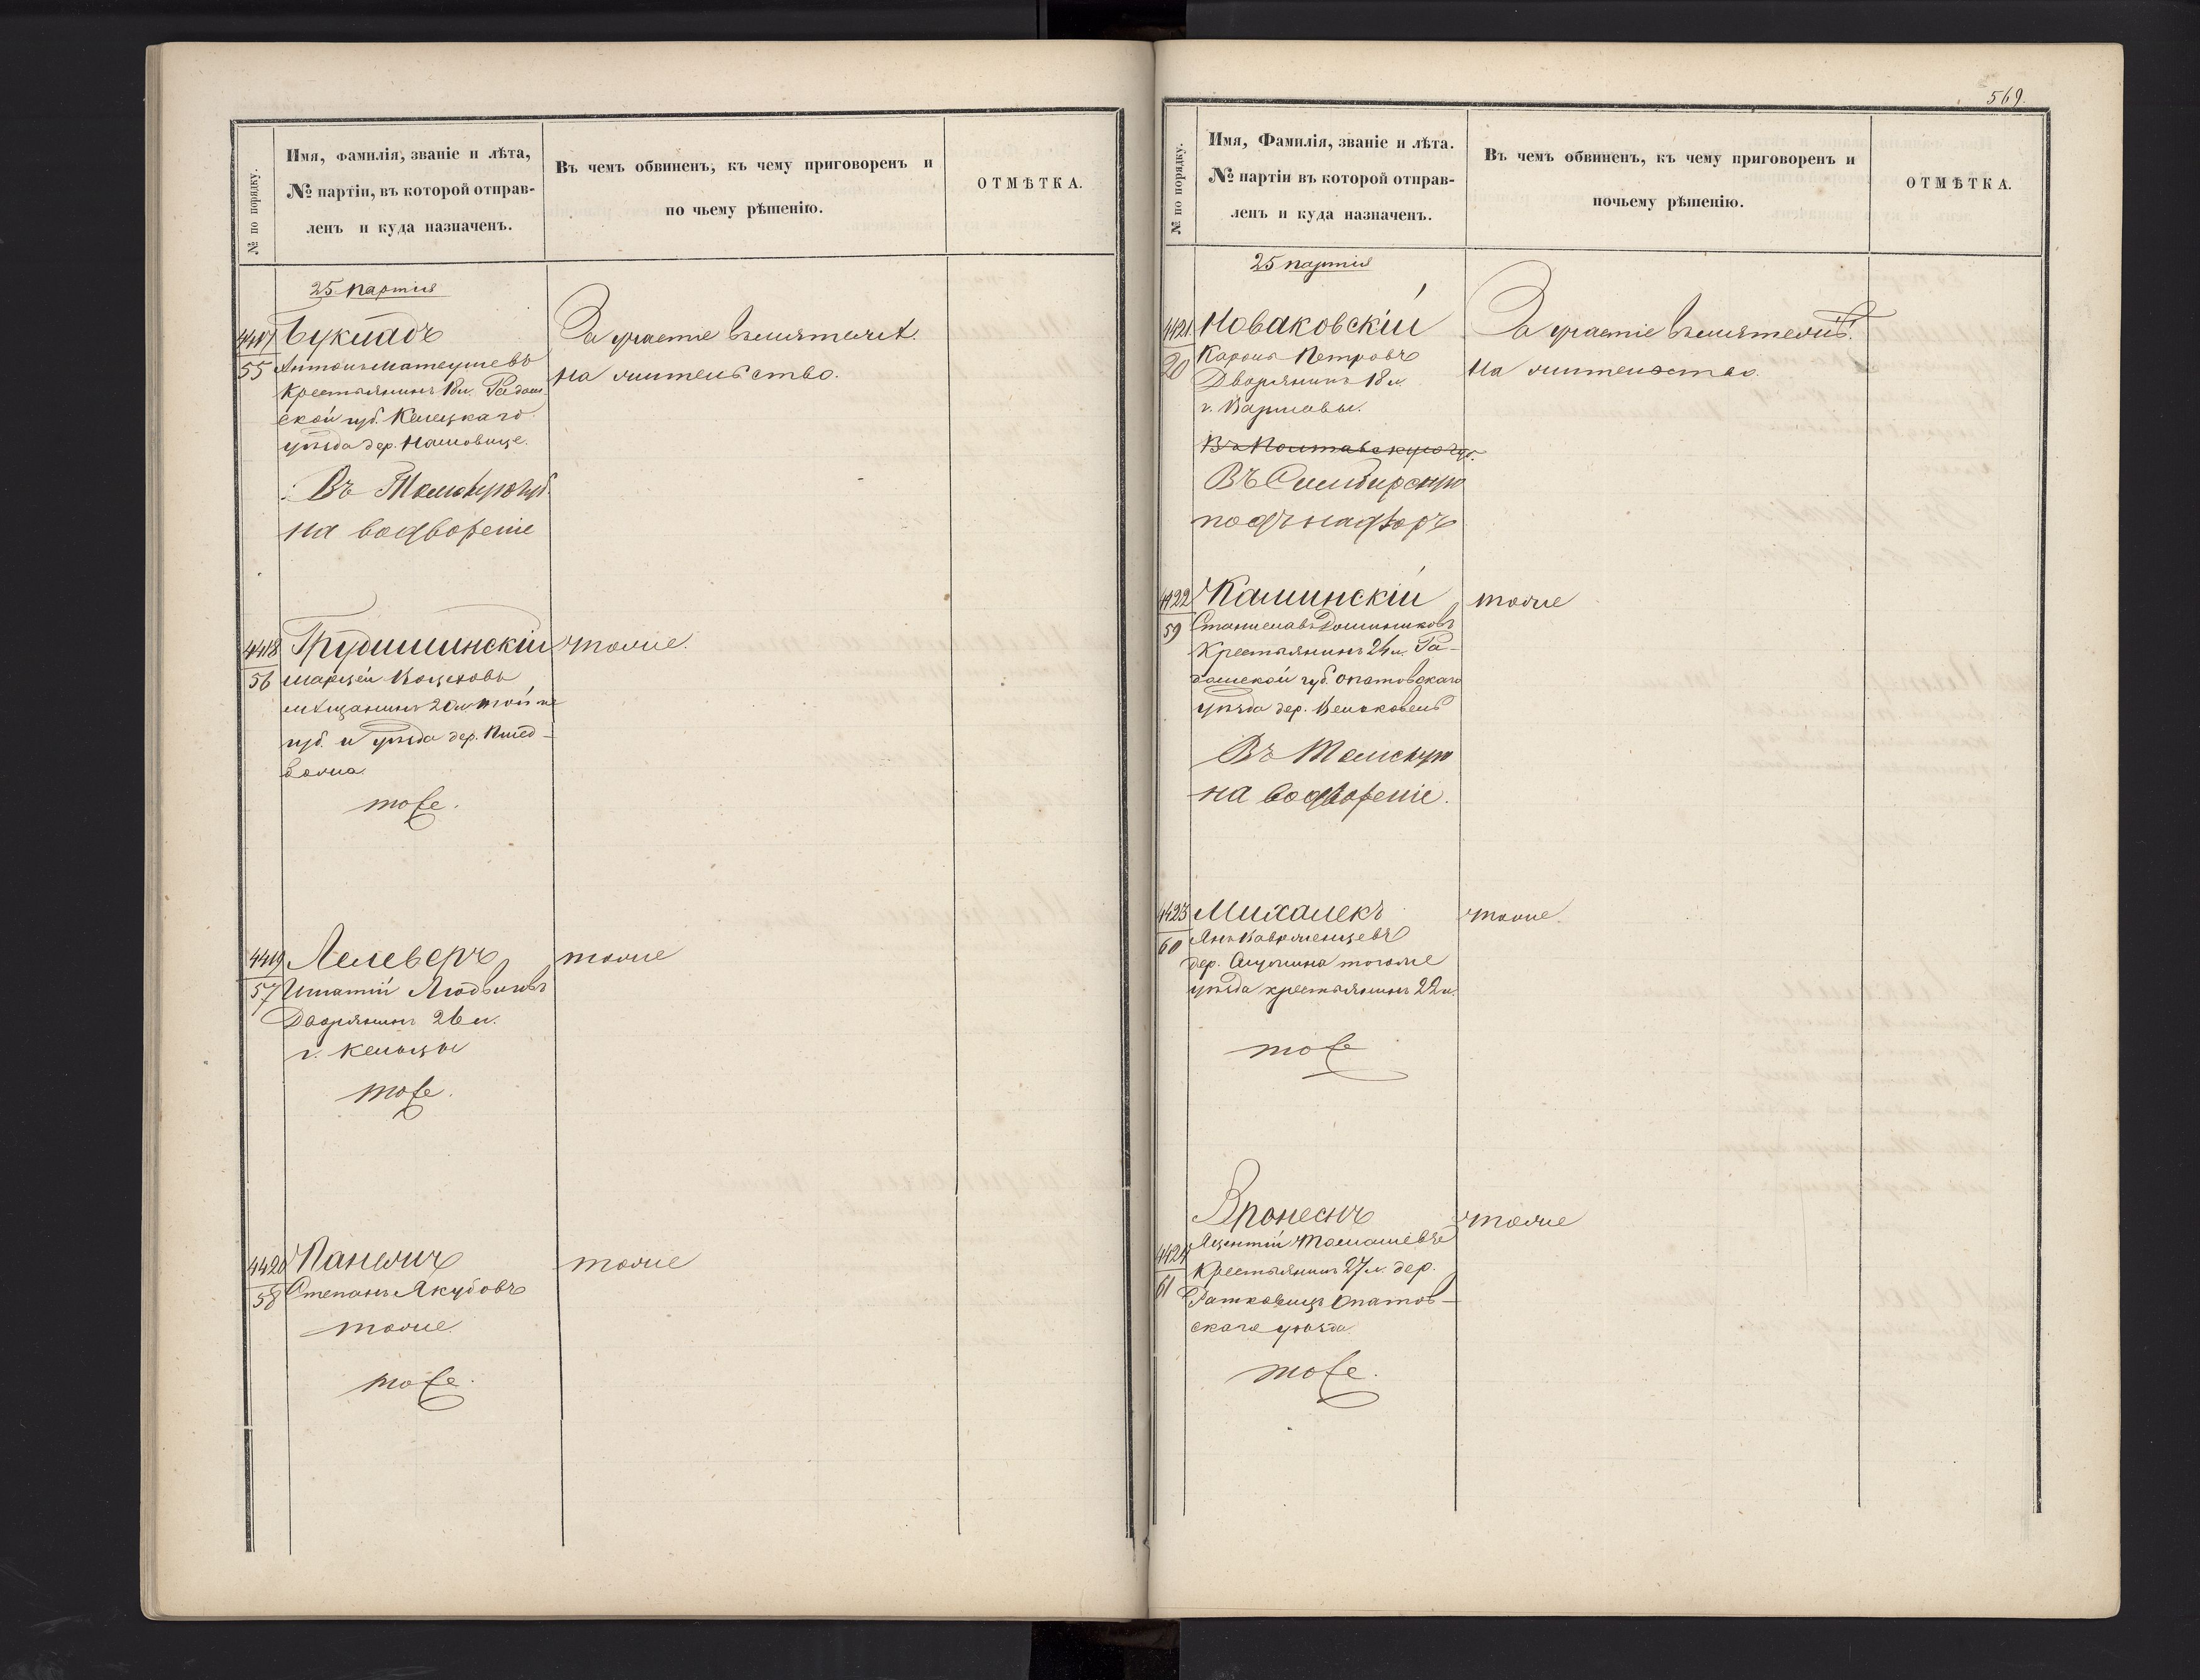 № по порядку.
Имя, фамилія, званіе и лѣта,
№ партіи, въ которой отправ-
ленъ и куда назначенъ.
Въ чемъ обвиненъ, къ чему приговоренъ и
по чьему рѣшенію.
ОТМѢТКА.
25 партія
4417
55
Букладъ
Антонъ Матеушевъ
Крестьянинъ 18 л. Радом
ской губ. Келецкаго
уѣзда дер.
Въ Томскую губ.
на водвореніе
За участіе въ мятежѣ.
На жительство.
4418
56
Грудзинскій
тоже.
мѣщанинъ 20 л. той же
губ. и уѣзда дер.
тоже.
4419
57
Лелеверъ
тоже
Игнатій Людвиковъ
Дворянинъ 26 л.
г. Кельцы
тоже.
4420
58
Панемичъ
тоже
Степанъ Якубовъ
тоже
тоже.
569.
№ по порядку.
Имя, Фамилія, званіе и лѣта.
№ партіи въ которой отправ-
ленъ и куда назначенъ.
Въ чемъ обвиненъ, къ чему приговоренъ и
почьему рѣшенію.
ОТМѢТКА.
25 партія
4421
20
Новаковскій
Кароль Петровъ
Дворянинъ 18 л.
г. Варшавы.
Въ Полтавскую губ.
Въ Симбирскую
подъ надзоръ
За участіе въ мятежѣ.
На жительство.
4422
59
Каминскій
тоже
Станиславъ Доминиковъ
Крестьянинъ 24 л. Ра-
домской губ. Опатовскаго
уѣзда дер.
Въ Томскую
на водвореніе.
4423
60
Михалекъ
тоже.
Янъ Вавженцевъ
дер. тогоже
уѣзда крестьянинъ 22 л.
тоже
4424
61
Вронеснъ
тоже
Яцентій Томашевъ
Крестьянинъ 27 л. дер.
Ратковицъ Опатов-
скаго уѣзда
тоже.